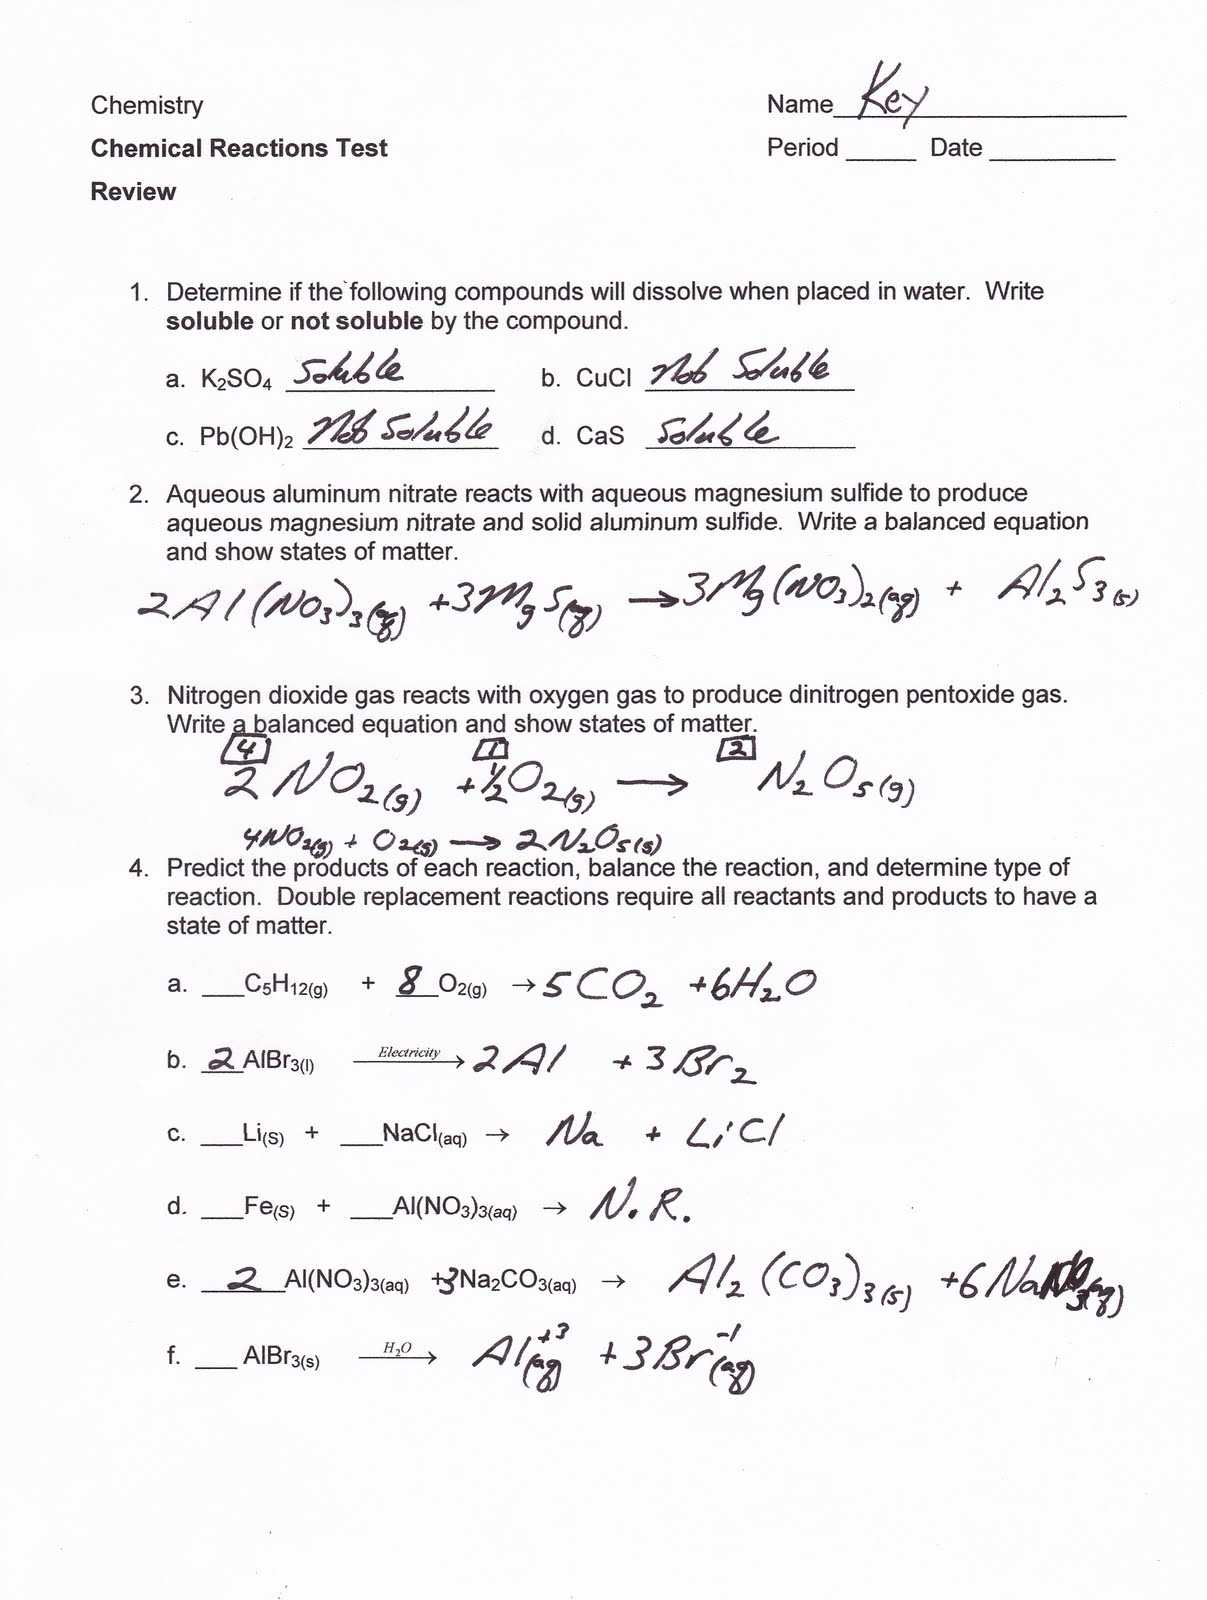 Chemistry Name Key
Chemical Reactions Test Period ______ Date ______
Review
1. Determine if the following compounds will dissolve when placed in water. Write
soluble or not soluble by the compound.
a. K₂SO₄ Soluble b. CuCl Not Soluble
c. Pb(OH)₂ Not Soluble d. CaS Soluble
2. Aqueous aluminum nitrate reacts with aqueous magnesium sulfide to produce
aqueous magnesium nitrate and solid aluminum sulfide. Write a balanced equation
and show states of matter.
2Al(NO₃)₃(aq) + 3MgS(aq) → 3Mg(NO₃)₂(aq) + Al₂S₃(s)
3. Nitrogen dioxide gas reacts with oxygen gas to produce dinitrogen pentoxide gas.
Write a balanced equation and show states of matter.
4 1 2
2 NO₂(g) + ½O₂(g) → N₂O₅(g)
4NO₂(g) + O₂(g) → 2N₂O₅(g)
4. Predict the products of each reaction, balance the reaction, and determine type of
reaction. Double replacement reactions require all reactants and products to have a
state of matter.
a. ___C₅H₁₂(g) + 8 O₂(g) → 5CO₂ + 6H₂O
b. 2 AlBr₃(l) Electricity → 2Al + 3Br₂
c. ___Li(S) + ___NaCl(aq) → Na + LiCl
d. ___Fe(S) + ___Al(NO₃)₃(aq) → N.R.
e. 2 Al(NO₃)₃(aq) + 3Na₂CO₃(aq) → Al₂(CO₃)₃(s) + 6NaNO₃(aq)
f. ___ AlBr₃(s) H₂O → Al⁺³(aq) + 3Br⁻¹(aq)